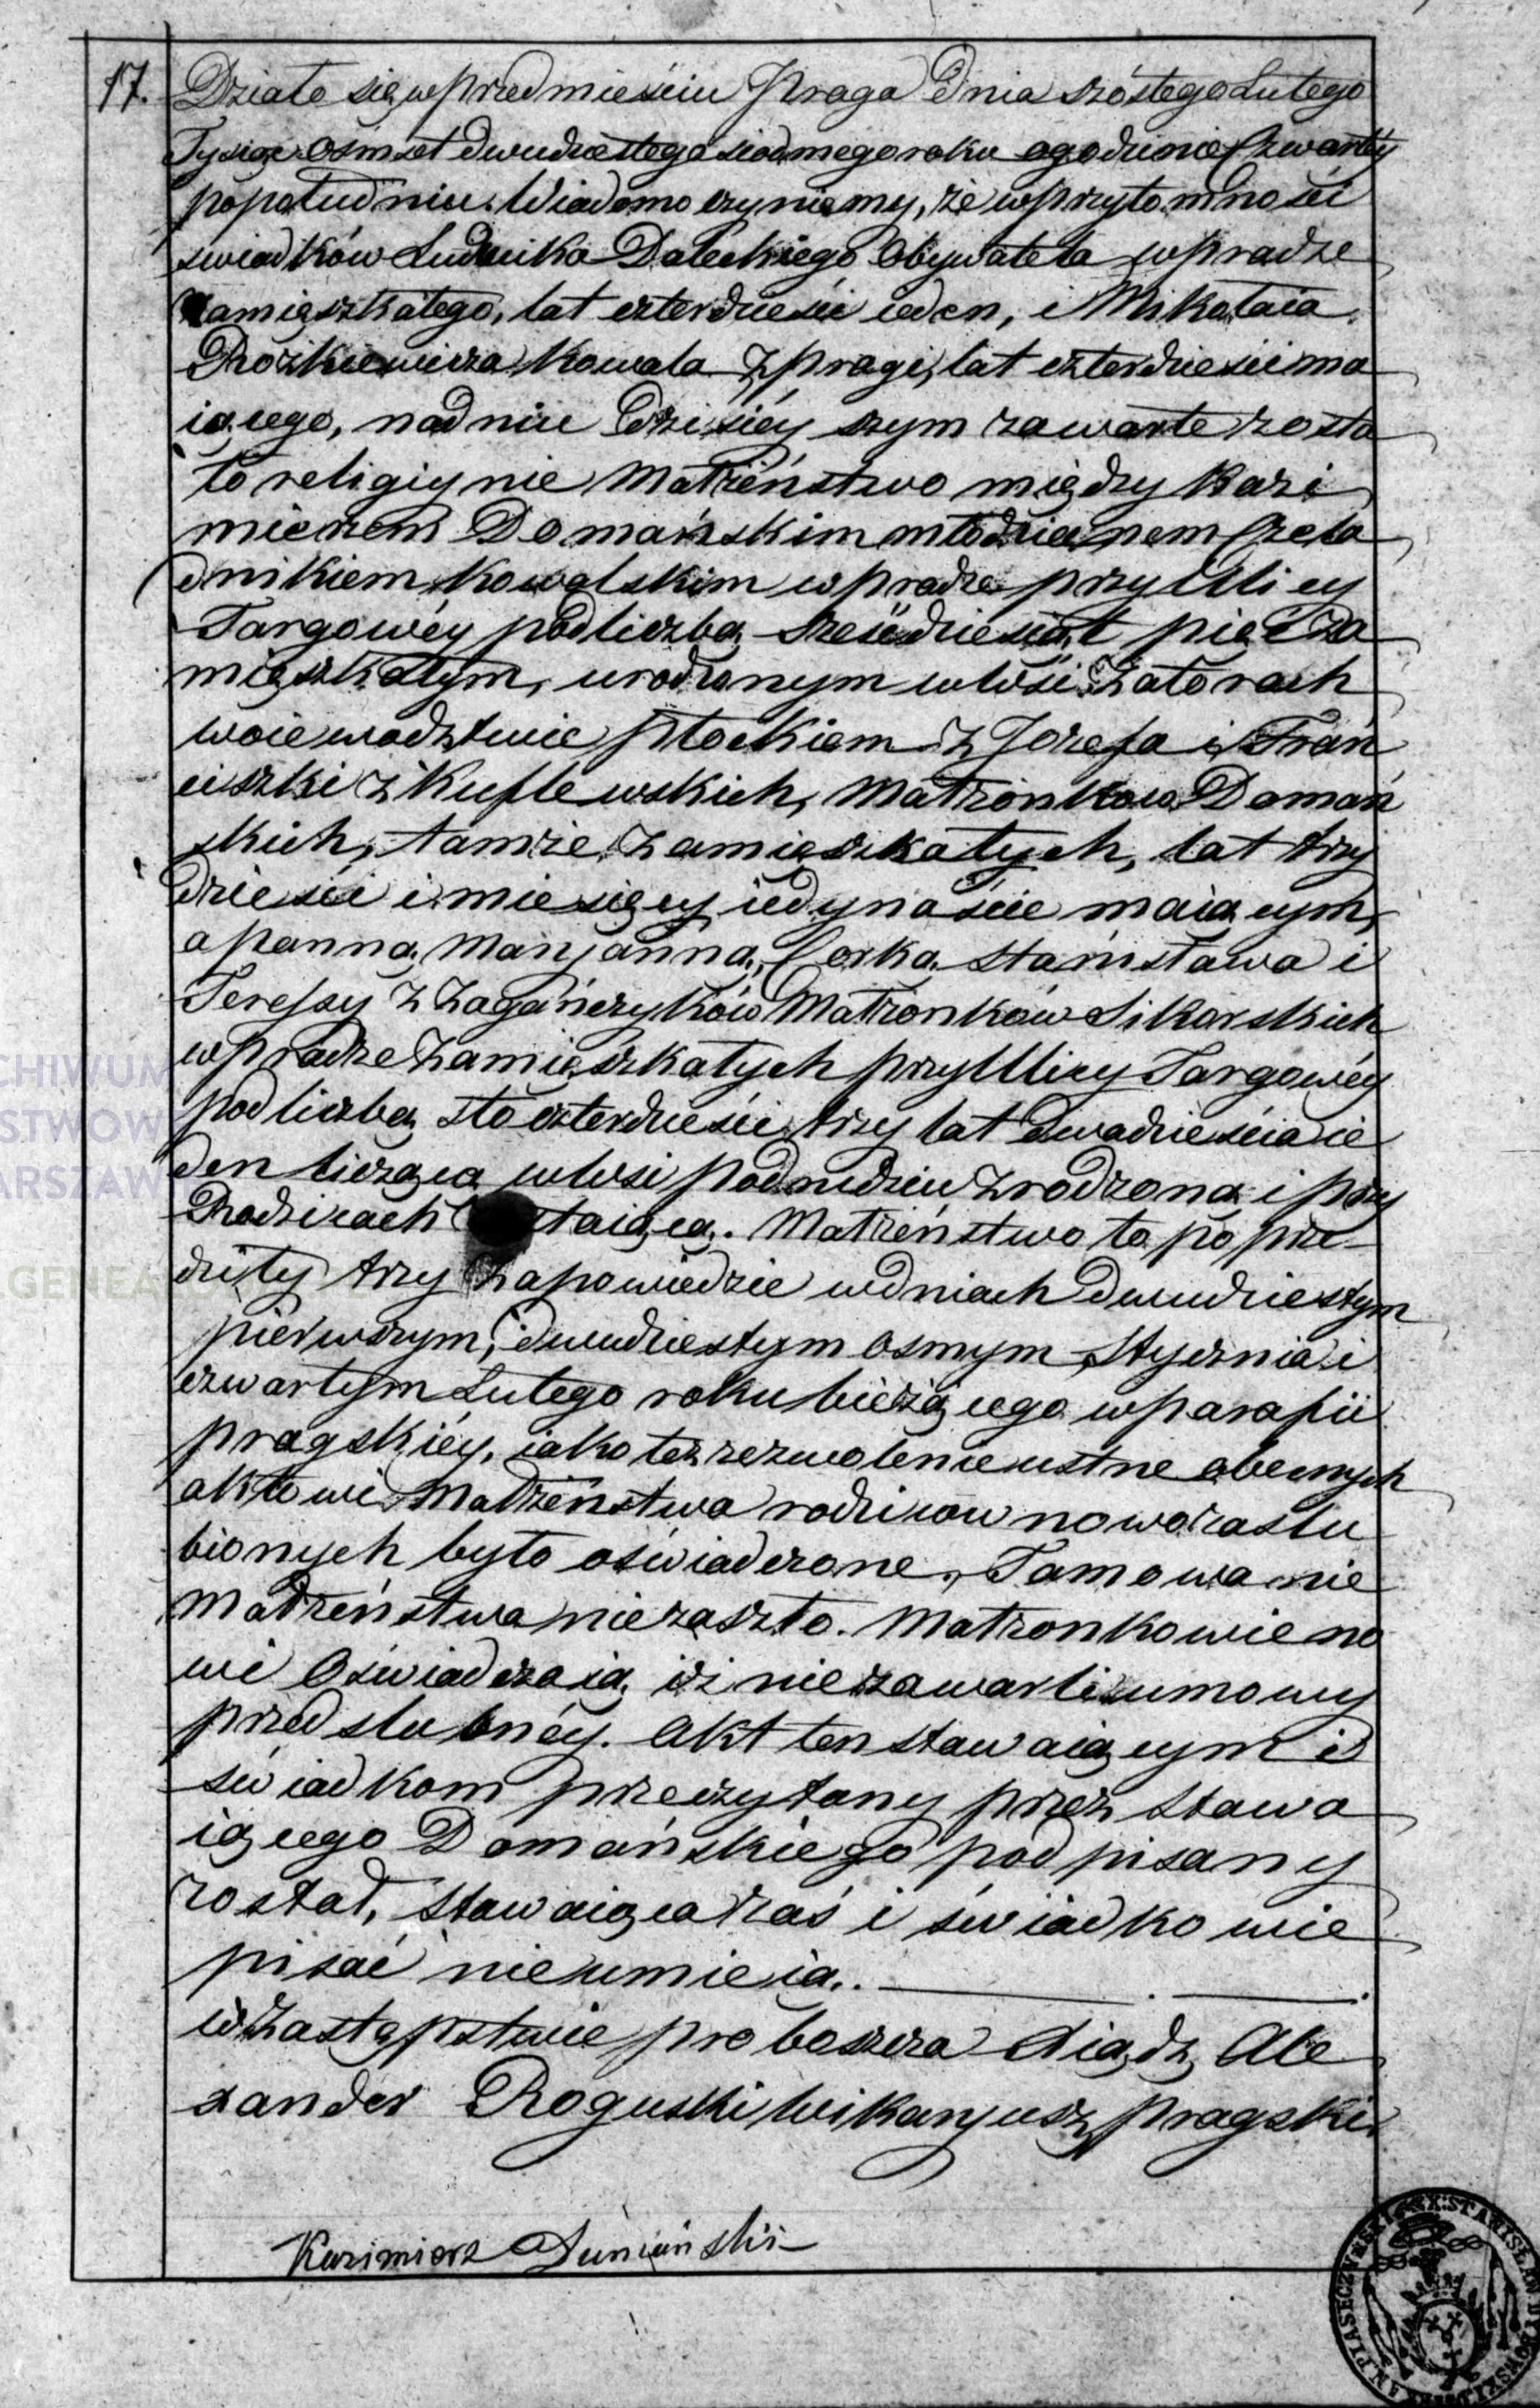 17. Działo się w przedmieściu Praga Dnia szóstego Lutego
Tysiąc Ośmset dwudziestego siódmego roku o godzinie Czwartéy
popołudniu. Wiadomo czyniemy, że w przytomności
swiadków Ludwika Daleckiego Obywatela w pradze
zamięszkałego, lat czterdzieści ieden, i Mikołaia
Rożkiewicza Kowala z pragi, lat czterdzieści ma
iącego, na dniu Dzisiéyszym zawarte zosta
ło religiynie Małżeństwo między Kazi
mierzem Domańskim młodzianem Czela
dnikiem Kowalskim w pradze przy Ulicy
Targowéy pod liczbą sześćdziesiąt pięć za
mięszkałym, urodzonym w Wsi Zatorach
woiewodztwie płockiem z Jozefa i Fran
ciszki z Kuflewskich, Małżonkow Domań
skich, tamże zamięszkałych, lat trzy
dzieści i miesięcy iedynaście maiącym,
a panną Marjanną, Corką Stanisława i
Teressy z Zagańczyków Małżonków Sikorskich
w pradze zamięszkałych przy Ulicy Targowéy
pod liczbą sto czterdzieści trzy lat dwadzieścia ie
den liczącą w Wsi podnudziu zrodzoną i przy
Rodzicach zostaiącą. Małżeństwo to poprze-
dziły trzy zapowiedzie w dniach dwudziestym
pierwszym, dwudziestym osmym Stycznia i
czwartym Lutego roku bieżącego w parafii
pragskiéy, iako też zezwolenie ustne obecnych
aktowi Małżeństwa rodziców nowozaslu
bionych było oświadczone. Tamowanie
Małżeństwa nie zaszło. Małżonkowie no
wi Oświadczaią iż nie zawarli umowy
przedslubnéy. Akt ten stawaiącym i
świadkom przeczytany przez stawa
iącego Domańskiego podpisany
został, Stawaiąca zaś i świadkowie
pisać nieumieią.
w zastępstwie proboszcza Xiądz Ale
xander Roguski Wikaryusz pragski
Kazimierz Dumański